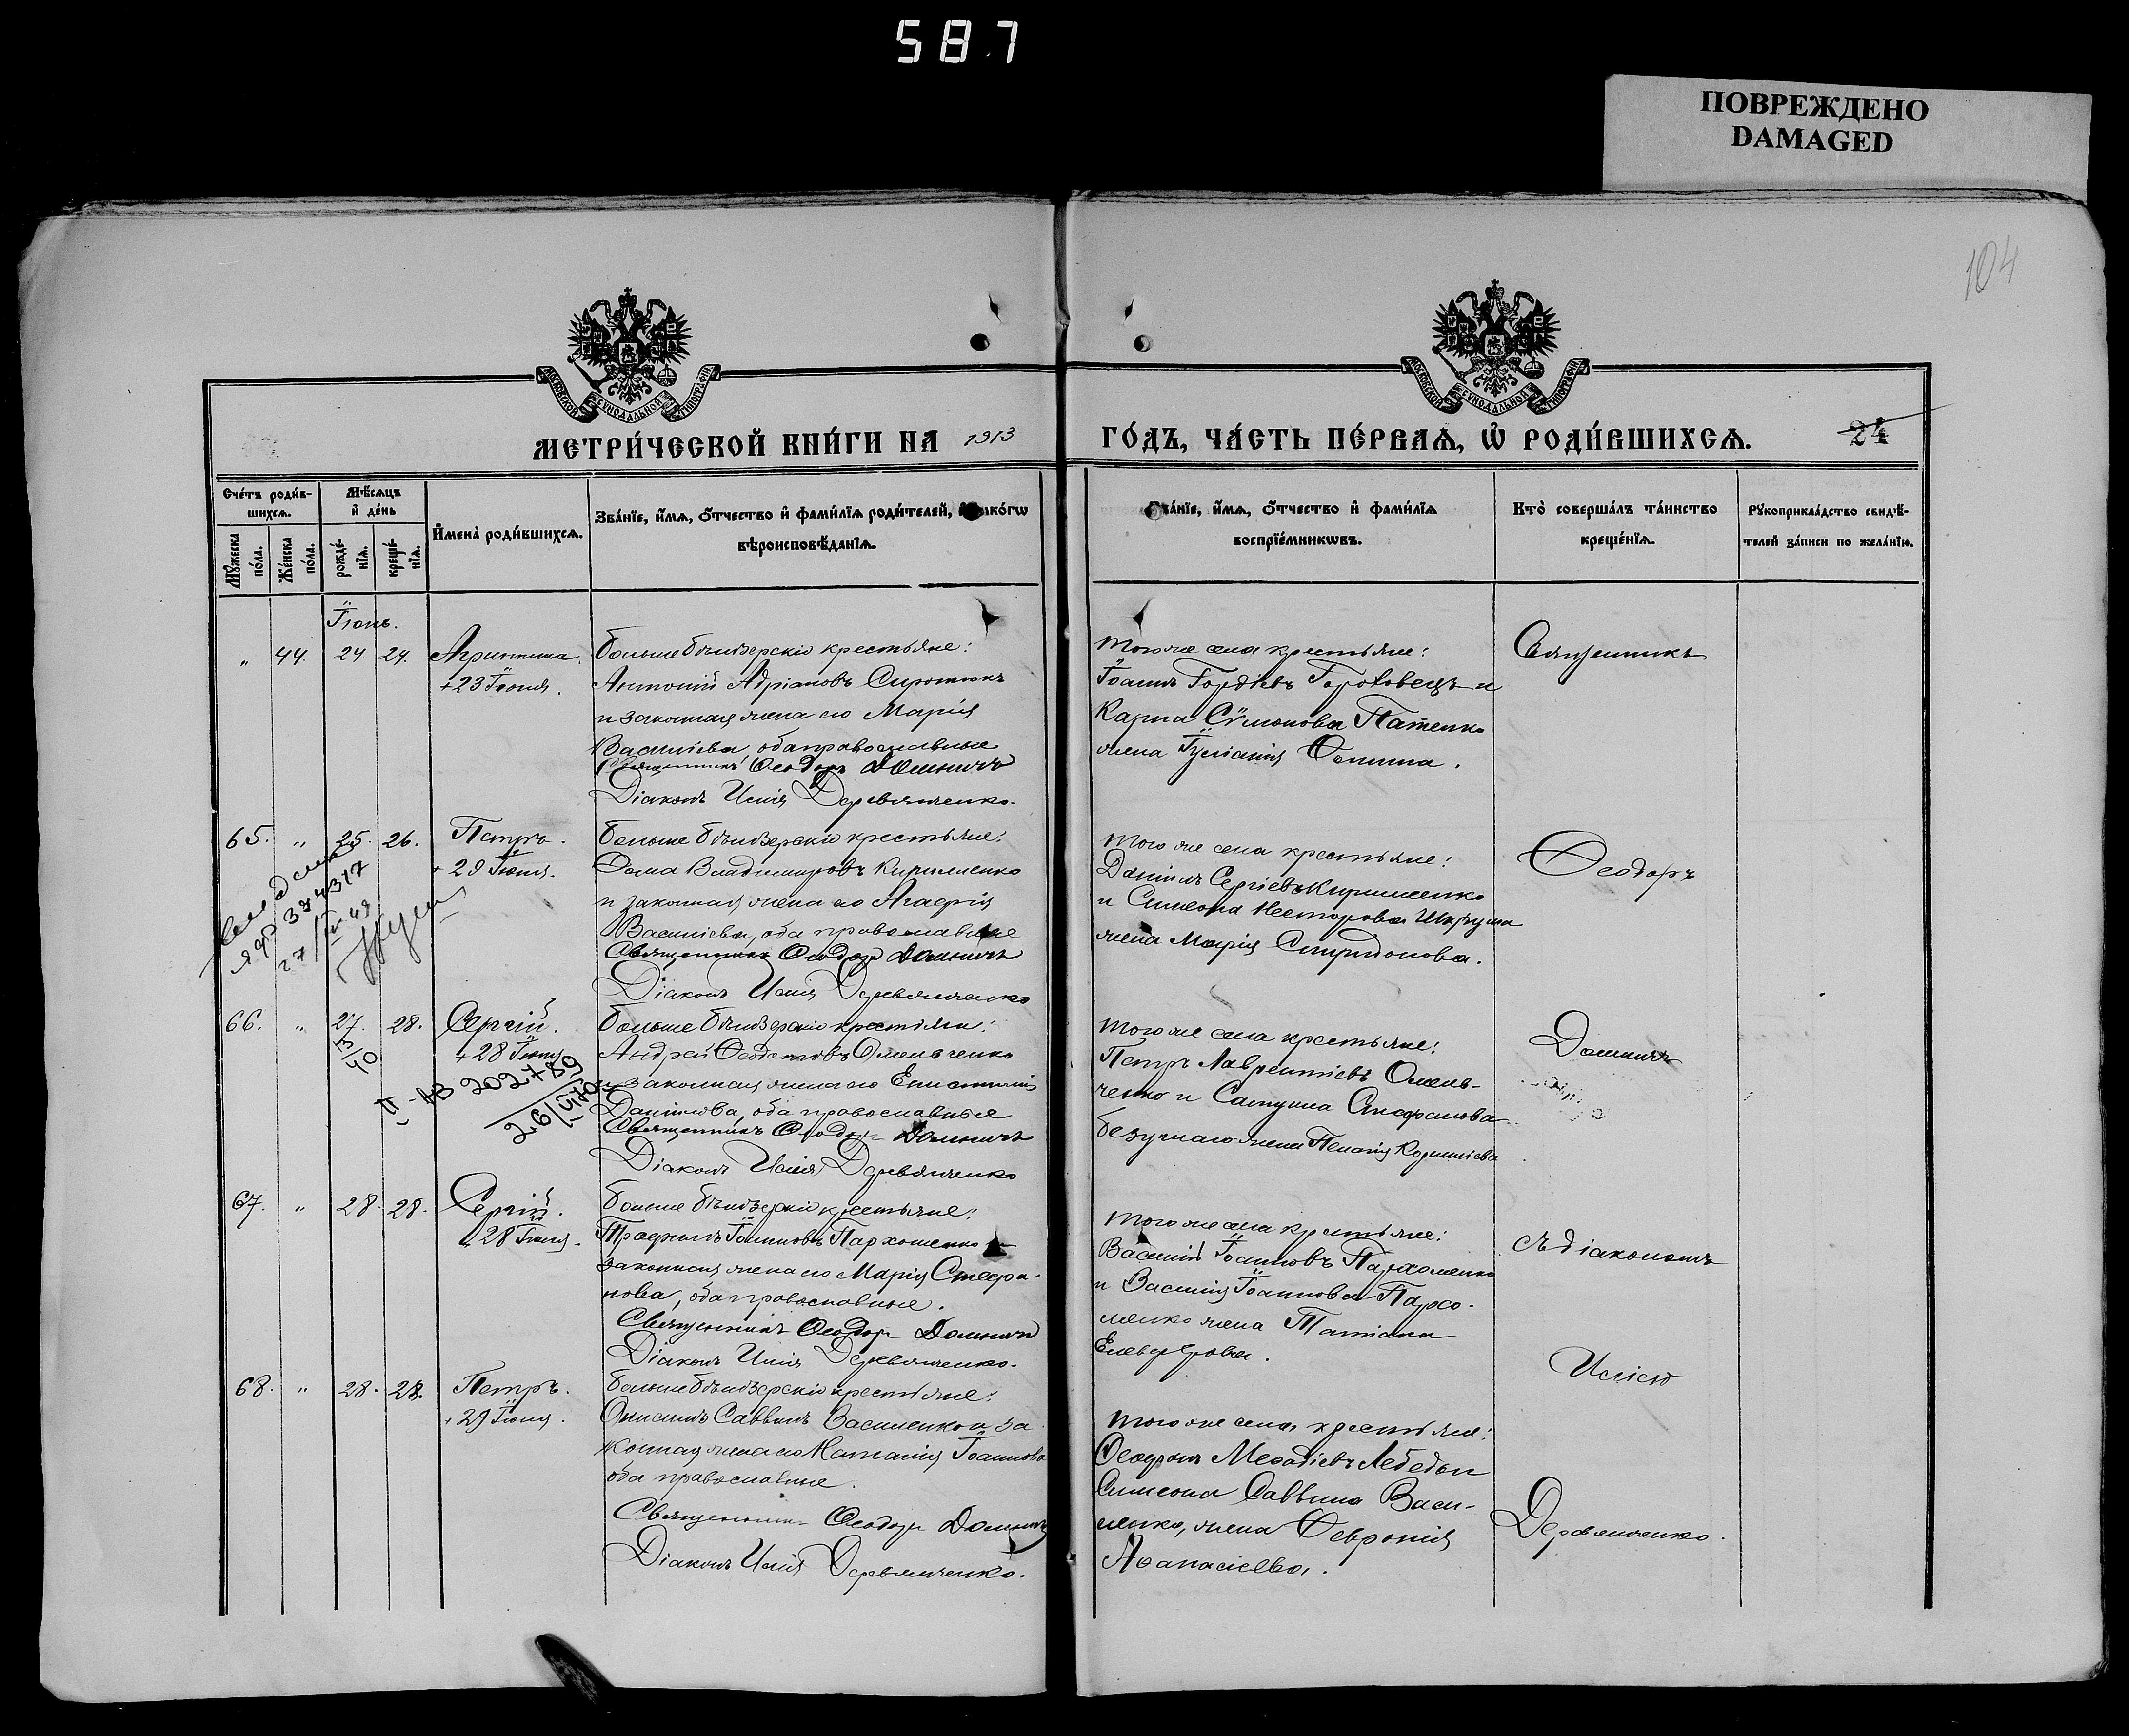 587
ПОВРЕЖДЕНО
DAMAGED
104
МОСКОВСКОЙ СѴНОДАЛЬНОЙ ТИПОГРАФІИ
МОСКОВСКОЙ СѴНОДАЛЬНОЙ ТИПОГРАФІИ
МЕТРИ́ЧЕСКОЙ КНИ́ГИ НА 1913
ГО́ДЪ, ЧА́СТЬ ПЕ́РВАѦ, Ѡ РОДИ́ВШИХСѦ.
24
Сче́тъ роди́в-
шихсѧ.
Мѣ́сѧцъ
и҆ де́нь
Мꙋ́жеска
по́ла.
Же́нска
по́ла.
рожде́-
нїѧ.
креще́-
нїѧ.
И҆мена̀ роди́вшихсѧ.
Зва́нїе, и҆́мѧ, ѻ҆́тчество и҆ фами́лїѧ роди́телей, и҆ како́гѡ
вѣроисповѣ́данїѧ.
Зва́нїе, и҆́мѧ, ѻ҆́тчество и҆ фами́лїѧ
воспрїе́мникѡвъ.
Кто̀ соверша́лъ та́инство
креще́нїѧ.
Рꙋкоприкла́дство свидѣ́-
телей за́писи по жела́нїю.
Іюнь.
„ 44. 24. 24. Агриппина.
+23 Іюня.
Больше Бѣлозерскіе крестьяне:
Антоній Адріановъ Сиротюкъ
и законная жена его Марія
Васильева, оба православные
Священникъ Ѳеодоръ Доминичъ
Діаконъ Илія Деревянченко.
Того же села крестьяне:
Іоаннъ Гордіевъ Гороховецъ и
Карпа Сѵмонова Патенко
жена Іуліанія Ѳомина.
Священникъ
65. „ 25. 26. Петръ.
+29 Іюня.
Больше Бѣлозерскіе крестьяне:
Ѳома Владимировъ Кириленко
и законная жена его Агафія
Васильева, оба православные
Священникъ Ѳеодоръ Доминичъ
Діаконъ Илія Деревянченко
Того же села крестьяне:
Даніилъ Сергіевъ Кириленко
и Симеона Несторова
жена Марія Спиридонова.
Ѳеодоръ
66. „ 27. 28. Сергій.
+28 Іюня
II-АВ 202789
26/VI 70
Больше Бѣлозерскіе крестьяне:
Андрей Ѳеодотовъ Омельченко
и законная жена его Епистимія
Даниилова, оба православные
Священникъ Ѳеодоръ Доминичъ
Діаконъ Илія Деревянченко
Того же села крестьяне:
Петръ Лаврентіевъ Омель-
ченко и Самуила Стефанова
жена Пелагія Корнилієва
Доминичъ
67. „ 28. 28. Сергій.
+28 Іюня.
Больше Бѣлозерскіе крестьяне:
Трофимъ Іоанновъ Пархоменко и
законная жена его Марія Стефа-
нова, оба православные.
Священникъ Ѳеодоръ Доминичъ
Діаконъ Илія Деревянченко.
Того же села крестьяне:
Василій Іоанновъ Пархоменко
и Василія Іоаннова Пархо-
менко жена Татіана
Елевѳерова.
съ діакономъ
68. „ 28. 28. Петръ.
+29 Іюня.
Больше Бѣлозерскіе крестьяне:
Онисимъ Саввинъ Василенко и за
конная жена его Наталія Іоаннова
оба православные.
Священникъ Ѳеодоръ Доминичъ
Діаконъ Илія Деревянченко.
Того же села крестьяне:
Ѳеофанъ Меѳодіевъ Лебедь и
Симеона Саввина Васи-
ленко, жена Ѳевронія
Аѳанасіева.
Иліею
Деревянченко.